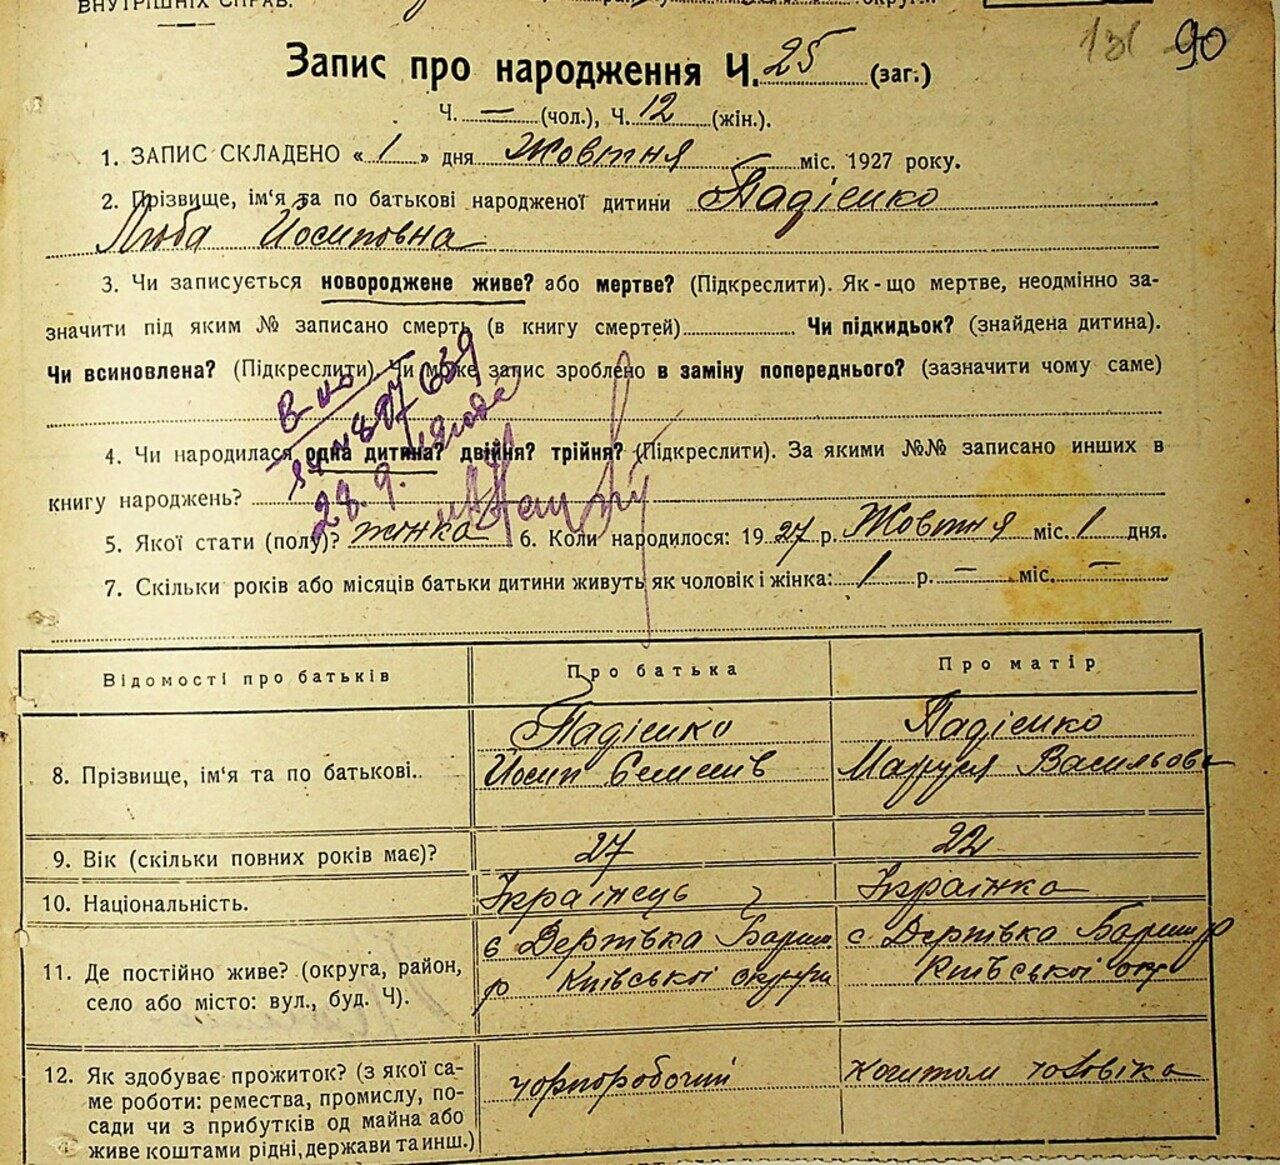 ВНУТРІШНІХ СПРАВ.
131 90
Запис про народження Ч. 25 (заг.)
Ч. — (чол.), Ч. 12 (жін.).
1. ЗАПИС СКЛАДЕНО « 1 » дня Жовтня міс. 1927 року.
2. Прізвище, ім'я та по батькові народженої дитини Падієнко
Люба Йосиповна
3. Чи записується новороджене живе? або мертве? (Підкреслити). Як-що мертве, неодмінно за-
значити під яким № записано смерть (в книгу смертей) Чи підкидьок? (знайдена дитина).
Чи всиновлена? (Підкреслити). Чи може запис зроблено в заміну попереднього? (зазначити чому саме)
4. Чи народилася одна дитина? двійня? трійня? (Підкреслити). За якими №№ записано инших в
книгу народжень?
28. 9.
5. Якої стати (полу)? жінка 6. Коли народилося: 1927 р. Жовтня міс. 1 дня.
7. Скільки років або місяців батьки дитини живуть як чоловік і жінка: 1 р. — міс. —
Відомості про батьків Про батька Про матір
8. Прізвище, ім'я та по батькові.. Падієнко Йосип Семенів Падієнко Маруся Васильовн
9. Вік (скільки повних років має)? 27 22
10. Національність. Українець Українка
11. Де постійно живе? (округа, район, с Дертівка Бориш с Дертівка Бориш р
село або місто: вул., буд. Ч). р Київської округи Київської окр
12. Як здобуває прожиток? (з якої са- чорноробочий коштом чоловіка
ме роботи: ремества, промислу, по-
сади чи з прибутків од майна або
живе коштами рідні, держави та инш.)